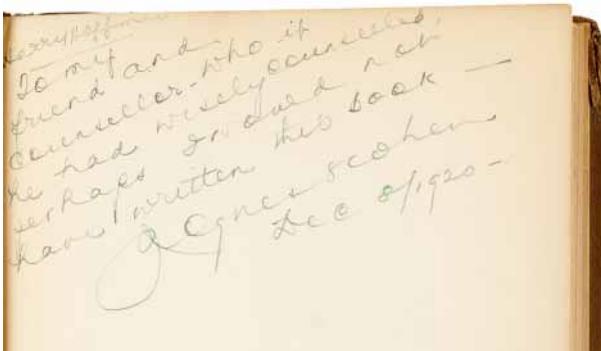 Harry Hoffman
To my
friend and
counsellor - who if
he had wisely counselled,
perhaps I would not
have written this book —
Agnes
Dec 8/1920 -